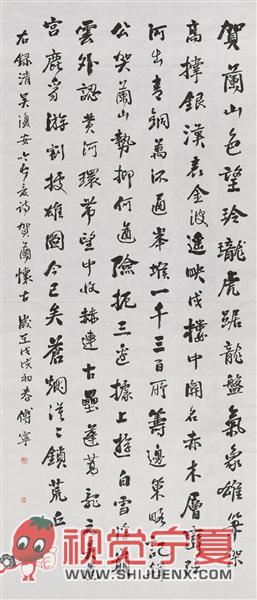 賀蘭山色望玲瓏虎踞龍盤氣象雄筆架
高撐銀漢表金波遙映戍樓中開名赤木層
河出青銅萬派通峯堠一千三百所籌邊策略記
公賀蘭山勢抑何遒險扼三邊據上游白雪
雲外認黃河環帶望中收赫連古壘蓬蒿
宮鹿豕游割據雄圖今已矣蒼烟漠〻鎖荒丘
右錄清吴復安七言詩賀蘭懷古 歲在戊戌初春 傅寧
视觉宁夏
WWW.SHIJUENX.COM